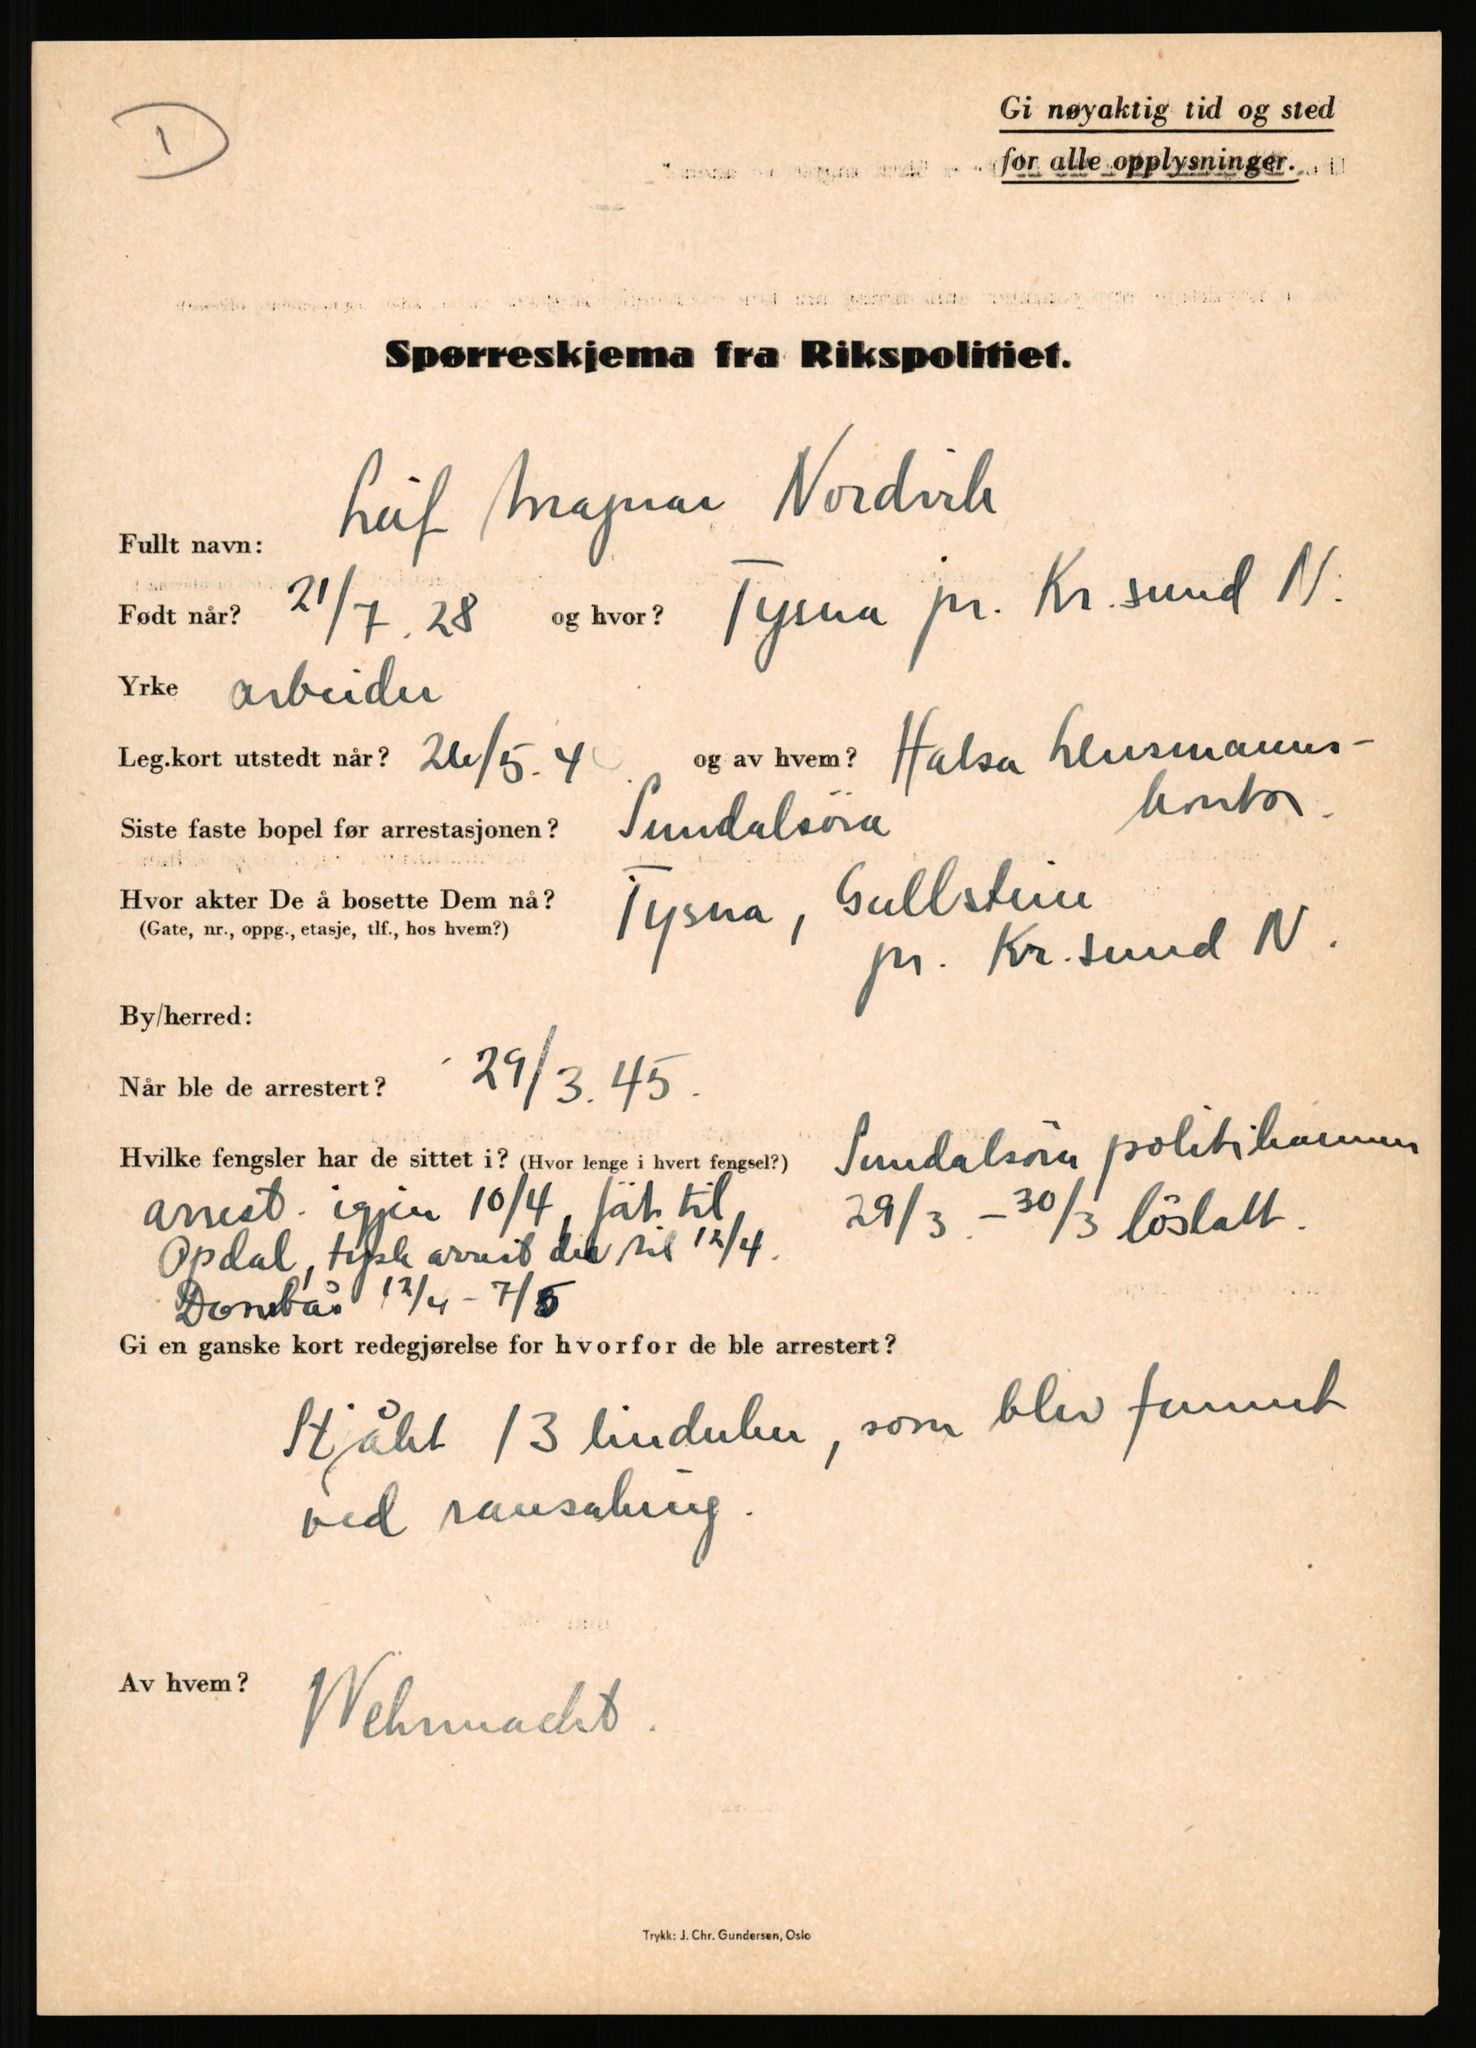 1
Gi nøyaktig tid og sted
for alle opplysninger.
Spørreskjema fra Rikspolitiet.
Fullt navn: Leif Magnar Nordvik
Født når? 21/7. 28 og hvor? Tysna pr. Kr.sund N.
Yrke arbeider
Leg.kort utstedt når? og av hvem? Halsa lensmanns-
kontor.
Siste faste bopel før arrestasjonen? Sundalsöra
Hvor akter De å bosette Dem nå? Tysna, Gullstein
(Gate, nr., oppg., etasje, tlf., hos hvem?) pr. Kr.sund N.
By/herred:
Når ble de arrestert? 29/3. 45.
Hvilke fengsler har de sittet i? (Hvor lenge i hvert fengsel?) Sundalsöra politikammer
29/3 - 30/3 löslatt.
arrest. igjen 10/4, til
Opdal, tysk arrest der til 12/4.
Dombås 12/4 - 7/5
Gi en ganske kort redegjørelse for hvorfor de ble arrestert?
Stjålet 13 som blev funnet
ved ransaking.
Av hvem? Wehrmacht.
Trykk: J. Chr. Gundersen, Oslo